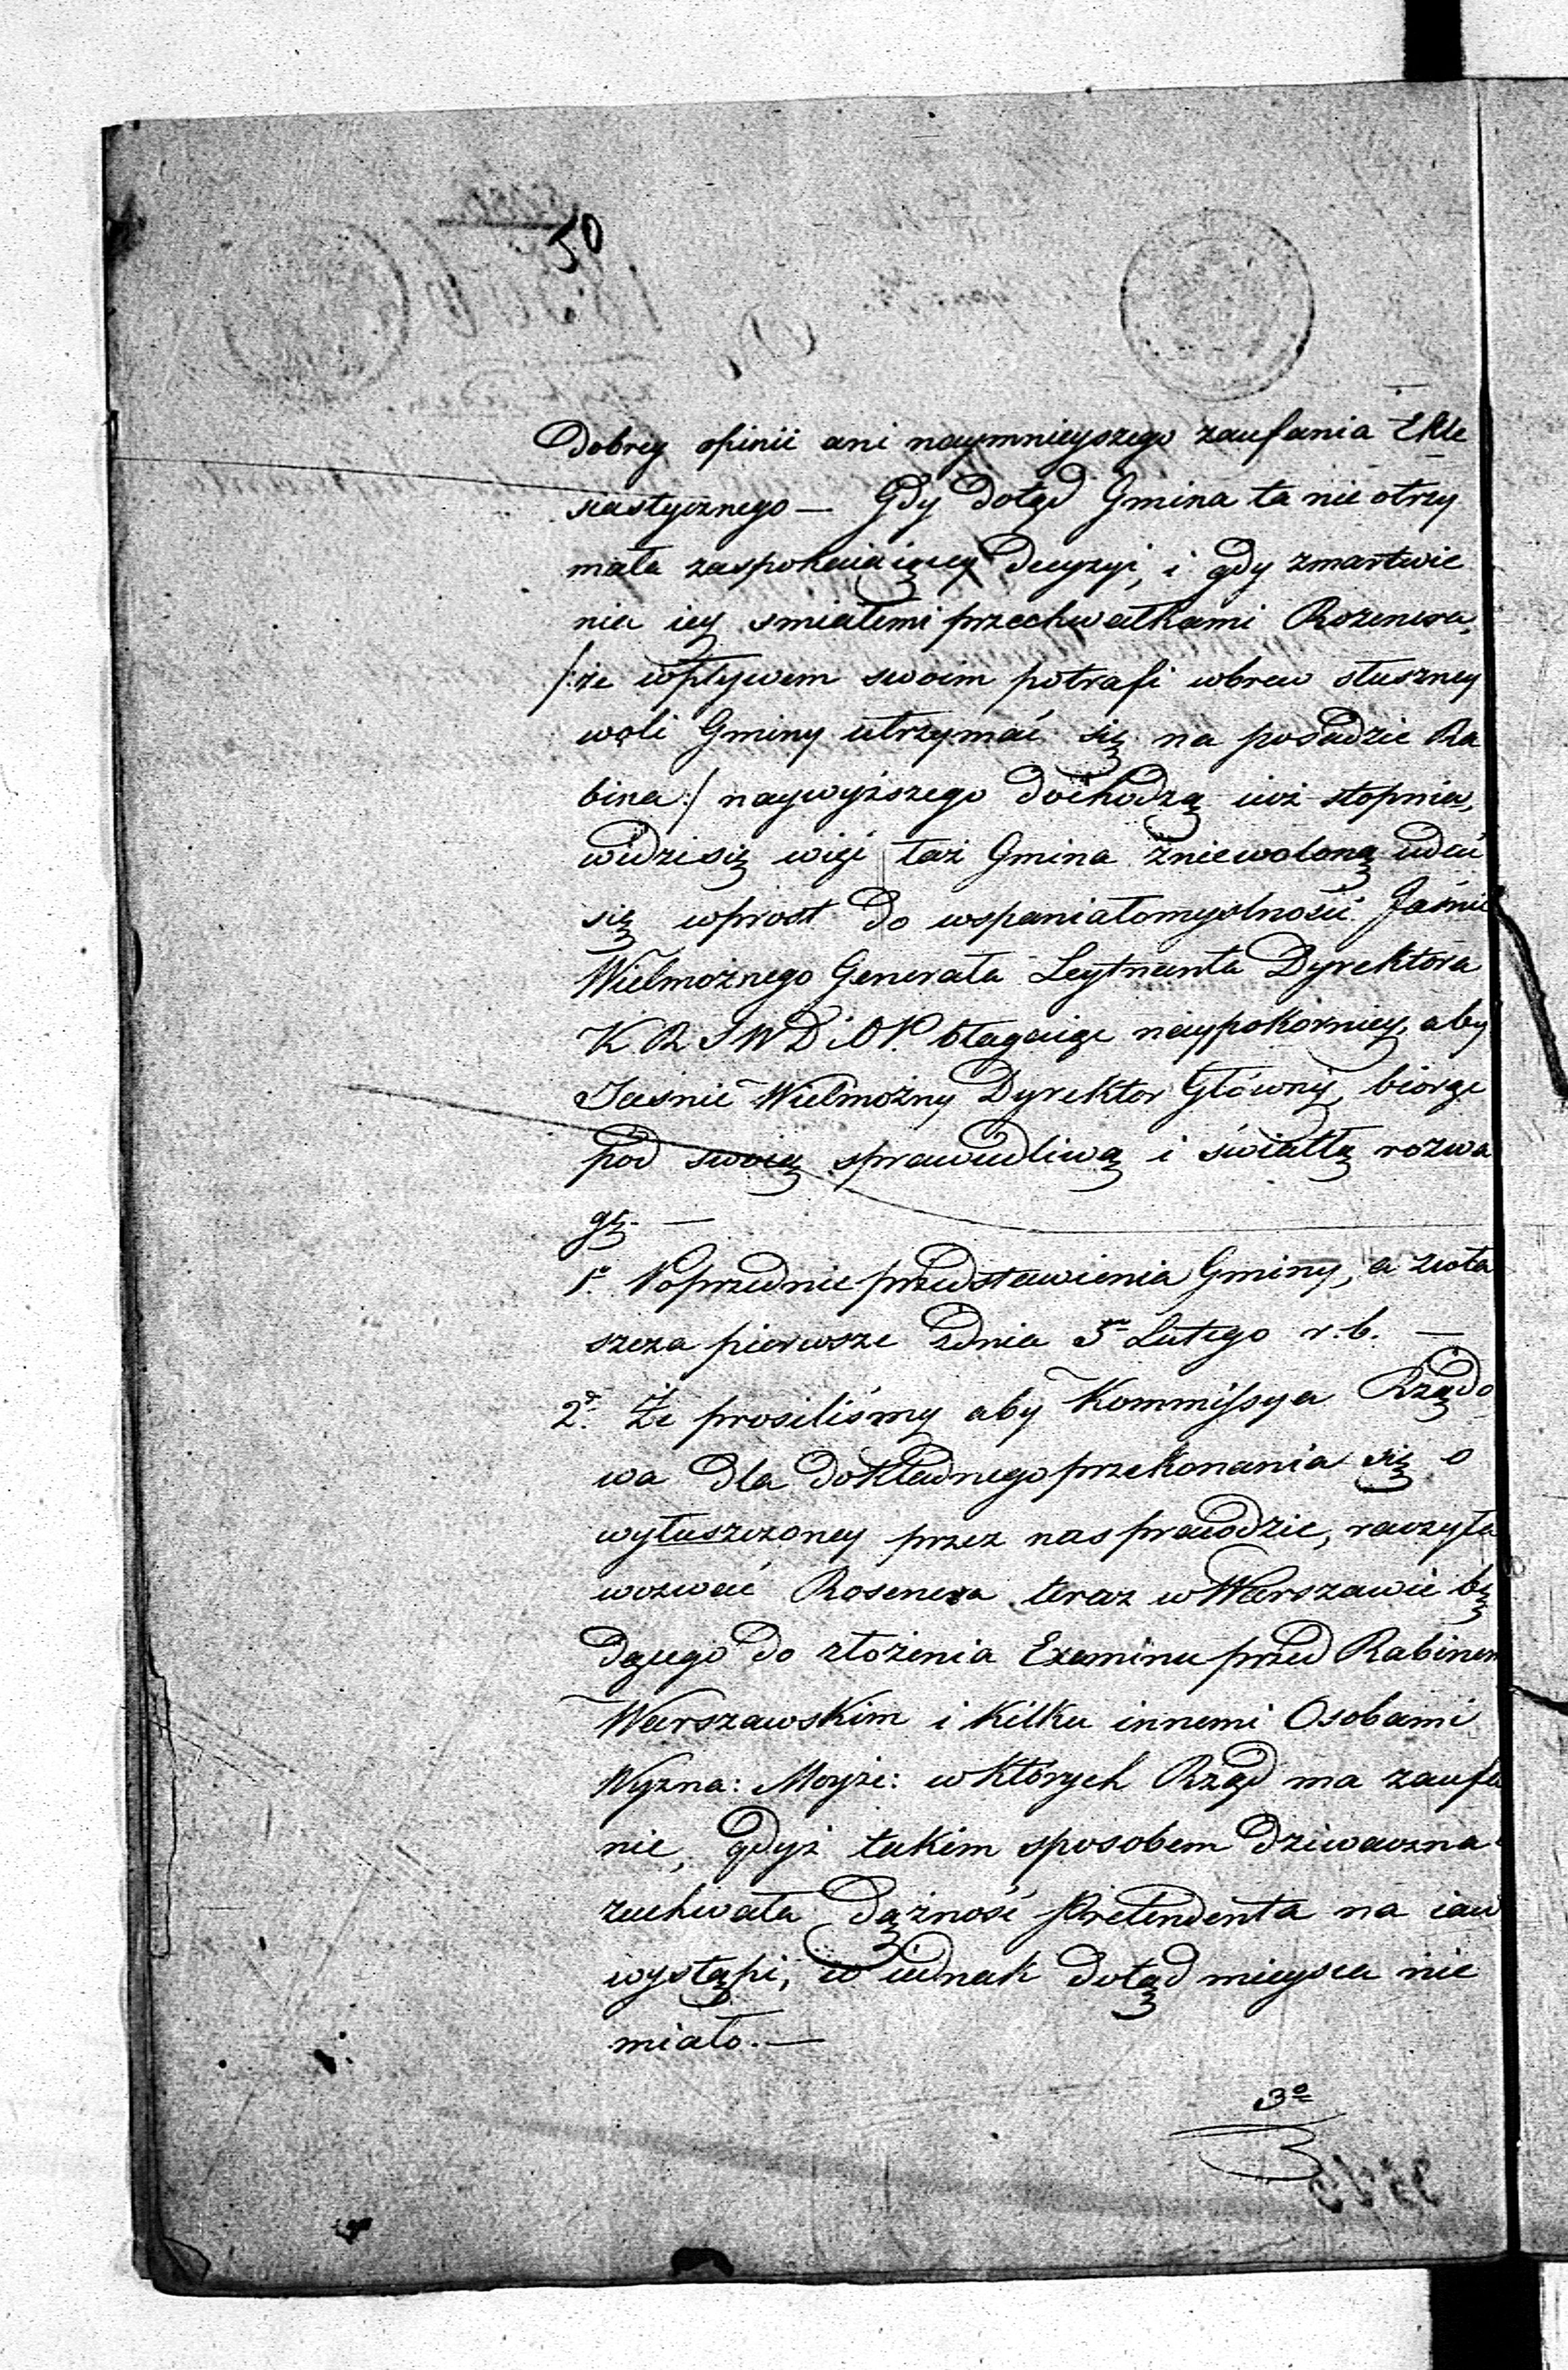 50
dobrey opinii ani naymnieyszego zaufania Ekle
siastycznego — Gdy dotąd Gmina ta nie otrzy
mała zaspokaiaiącey decyzyi, i gdy zmartwie
nia iey smiałemi przechwałkami Rozenera,
/:że wpływem swoim potrafi wbrew słuszney
woli Gminy utrzymać się na posadzie Ra
bina:/ naywyższego dochodzą iuż stopnia,
widzi się więc taż Gmina zniewoloną udać
się wprost do wspaniałomyslność Jaśnie
Wielmożnego Generała Leytnanta Dyrektora
K R S W D i O P. błagaiąc naypokorniey, aby
Jaśnie Wielmożny Dyrektor Główny, biorąc
pod swoią sprawiedliwą i światłą rozwa
gę. —
1° Poprzednie przedstawienia Gminy, a zwła
szcza pierwsze z dnia 5 Lutego r. b. —
2° Że prosiliśmy aby Kommissya Rządo
wa dla dokładnego przekonania się o
wyłuszczoney przez nas prawdzie, raczyła
wezwać Rosenera teraz w Warszawie bę
dącego do złożenia Examinu przed Rabinem
Warszawskim i kilku innemi Osobami
Wyzna: Moyże: w których Rząd ma zaufa
nie, gdyż takim sposobem dziwaczna
zuchwała dążność Pretendenta na iaw
wystąpi, co iednak dotąd mieysca nie
miało. —
3°